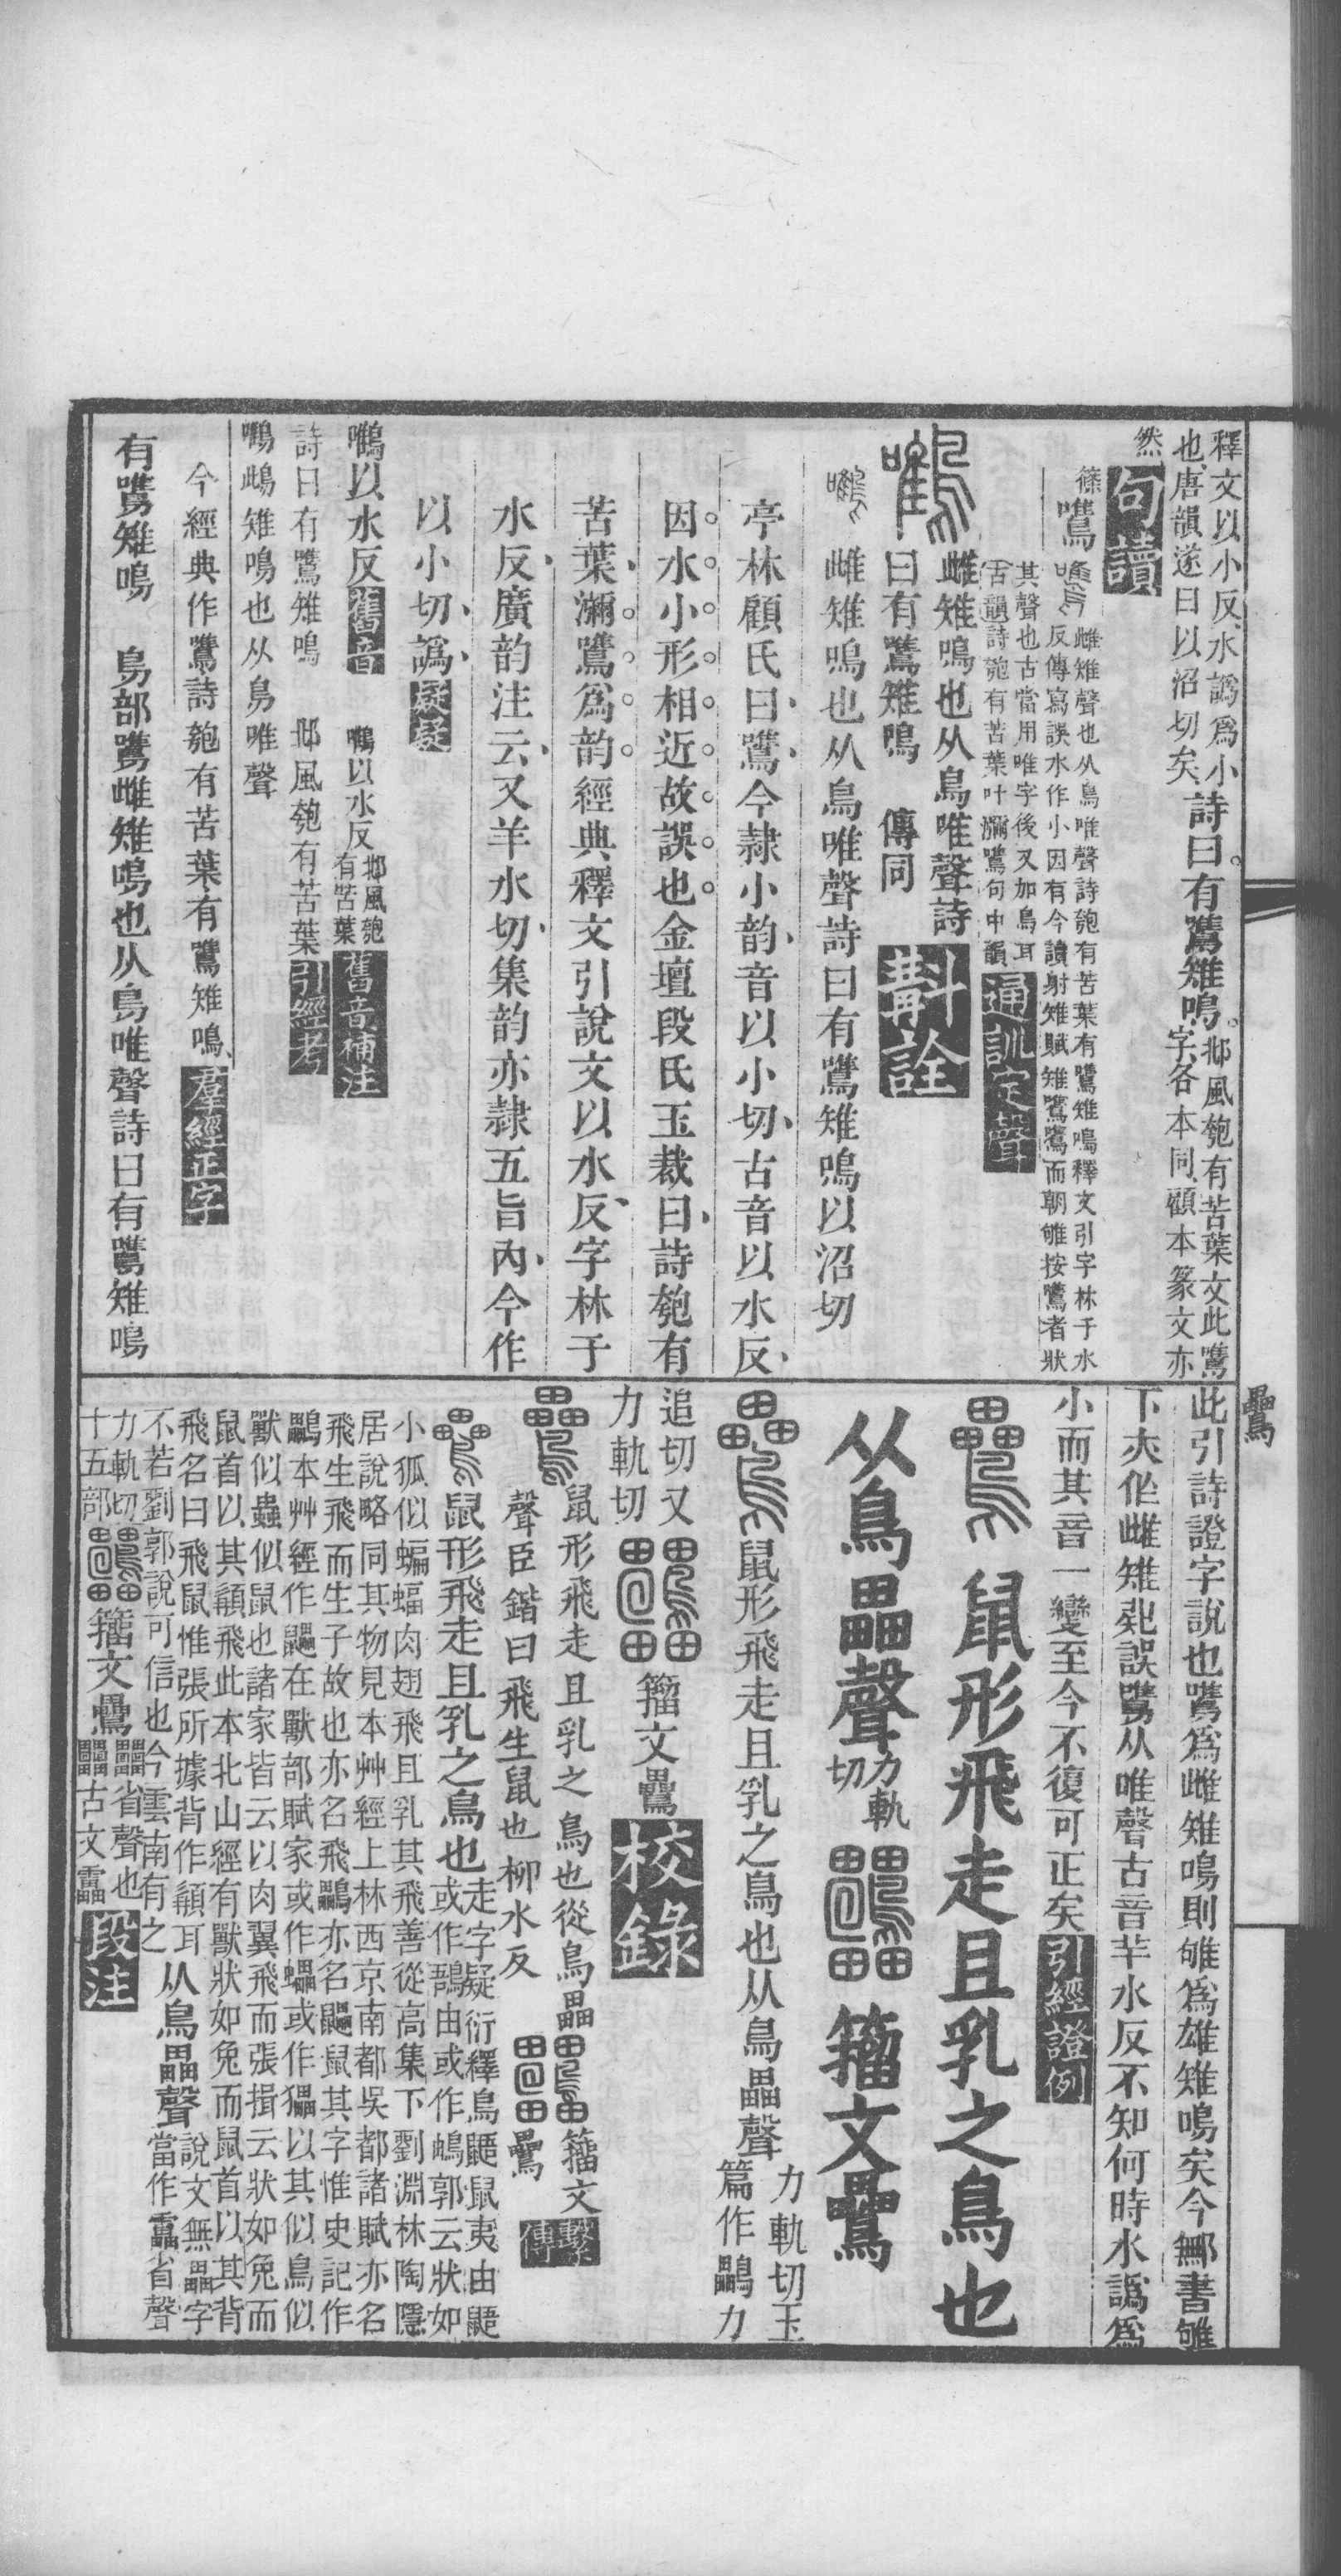 釋文以小反水譌爲小
也唐韻遂曰以沼切矣詩曰有鷕雉鳴邶風匏有苦葉文此鷕
字各本同顧本篆文亦
然句讀
篠鷕雌雉聲也从鳥唯聲詩匏有苦葉有鷕雉鳴釋文引字林于水
反傳寫誤水作小因有今讀射雉賦雉鷕鷕而朝雊按鷕者狀
其聲也古當用唯字後又加鳥耳
古韻詩匏有苦葉叶瀰鷕句中韻通訓定聲
雌雉鳴也从鳥唯聲詩
曰有鷕雉鳴 傳同斠詮
雌雉鳴也从鳥唯聲詩曰有鷕雉鳴以沼切
亭林顧氏曰鷕今隷小韵音以小切古音以水反
因水小形相近故誤也金壇段氏玉裁曰詩匏有
苦葉瀰鷕爲韵經典釋文引說文以水反字林于
水反廣韵注云又羊水切集韵亦隷五旨內今作
以小切譌疑疑
鷕以水反舊音 鷕以水反邶風匏有苦葉舊音補注
詩曰有鷕雉鳴 邶風匏有苦葉引經考
鷕雌雉鳴也从鳥唯聲
今經典作鷕詩匏有苦葉有鷕雉鳴羣經正字
有鷕雉鳴 鳥部鷕雌雉鳴也从鳥唯聲詩曰有鷕雉鳴
此引詩證字說也鷕爲雌雉鳴則雊爲雄雉鳴矣今鄭書雊
下夾作雌雉鳴誤鷕从唯聲古音羊水反不知何時水譌爲
小而其音一變至今不復可正矣引經證例
鼠形飛走且乳之鳥也
从鳥畾聲力軌切 籒文鸓
鼠形飛走且乳之鳥也从鳥畾聲力軌切玉篇作鸓力
追切又力軌切 籒文鸓校錄
鼠形飛走且乳之鳥也從鳥畾 籒文
聲臣鍇曰飛生鼠也柳水反 鸓繫傳
鼠形飛走且乳之鳥也走字疑衍釋鳥鼯鼠夷由鼯
或作鼯由或作鷂郭云狀如
小狐似蝙蝠肉翅飛且乳其飛善從高集下劉淵林陶隱
居說略同其物見本艸經上林西京南都吳都諸賦亦名
飛生飛而生子故也亦名飛鸓亦名鼺鼠其字惟史記作
鸓本艸經作鼺在獸部賦家或作蠝或作獵以其似鳥似
獸似蟲似鼠也諸家皆云以肉翼飛而張揖云狀如兔而
鼠首以其䫇飛此本北山經有獸狀如兔而鼠首以其背
飛名曰飛鼠惟張所據背作䫇耳从鳥畾聲說文無畾字
不若劉郭說可信也今雲南有之 當作靁省聲
力軌切十五部 籒文鸓 省聲也 古文靁段注
鸓